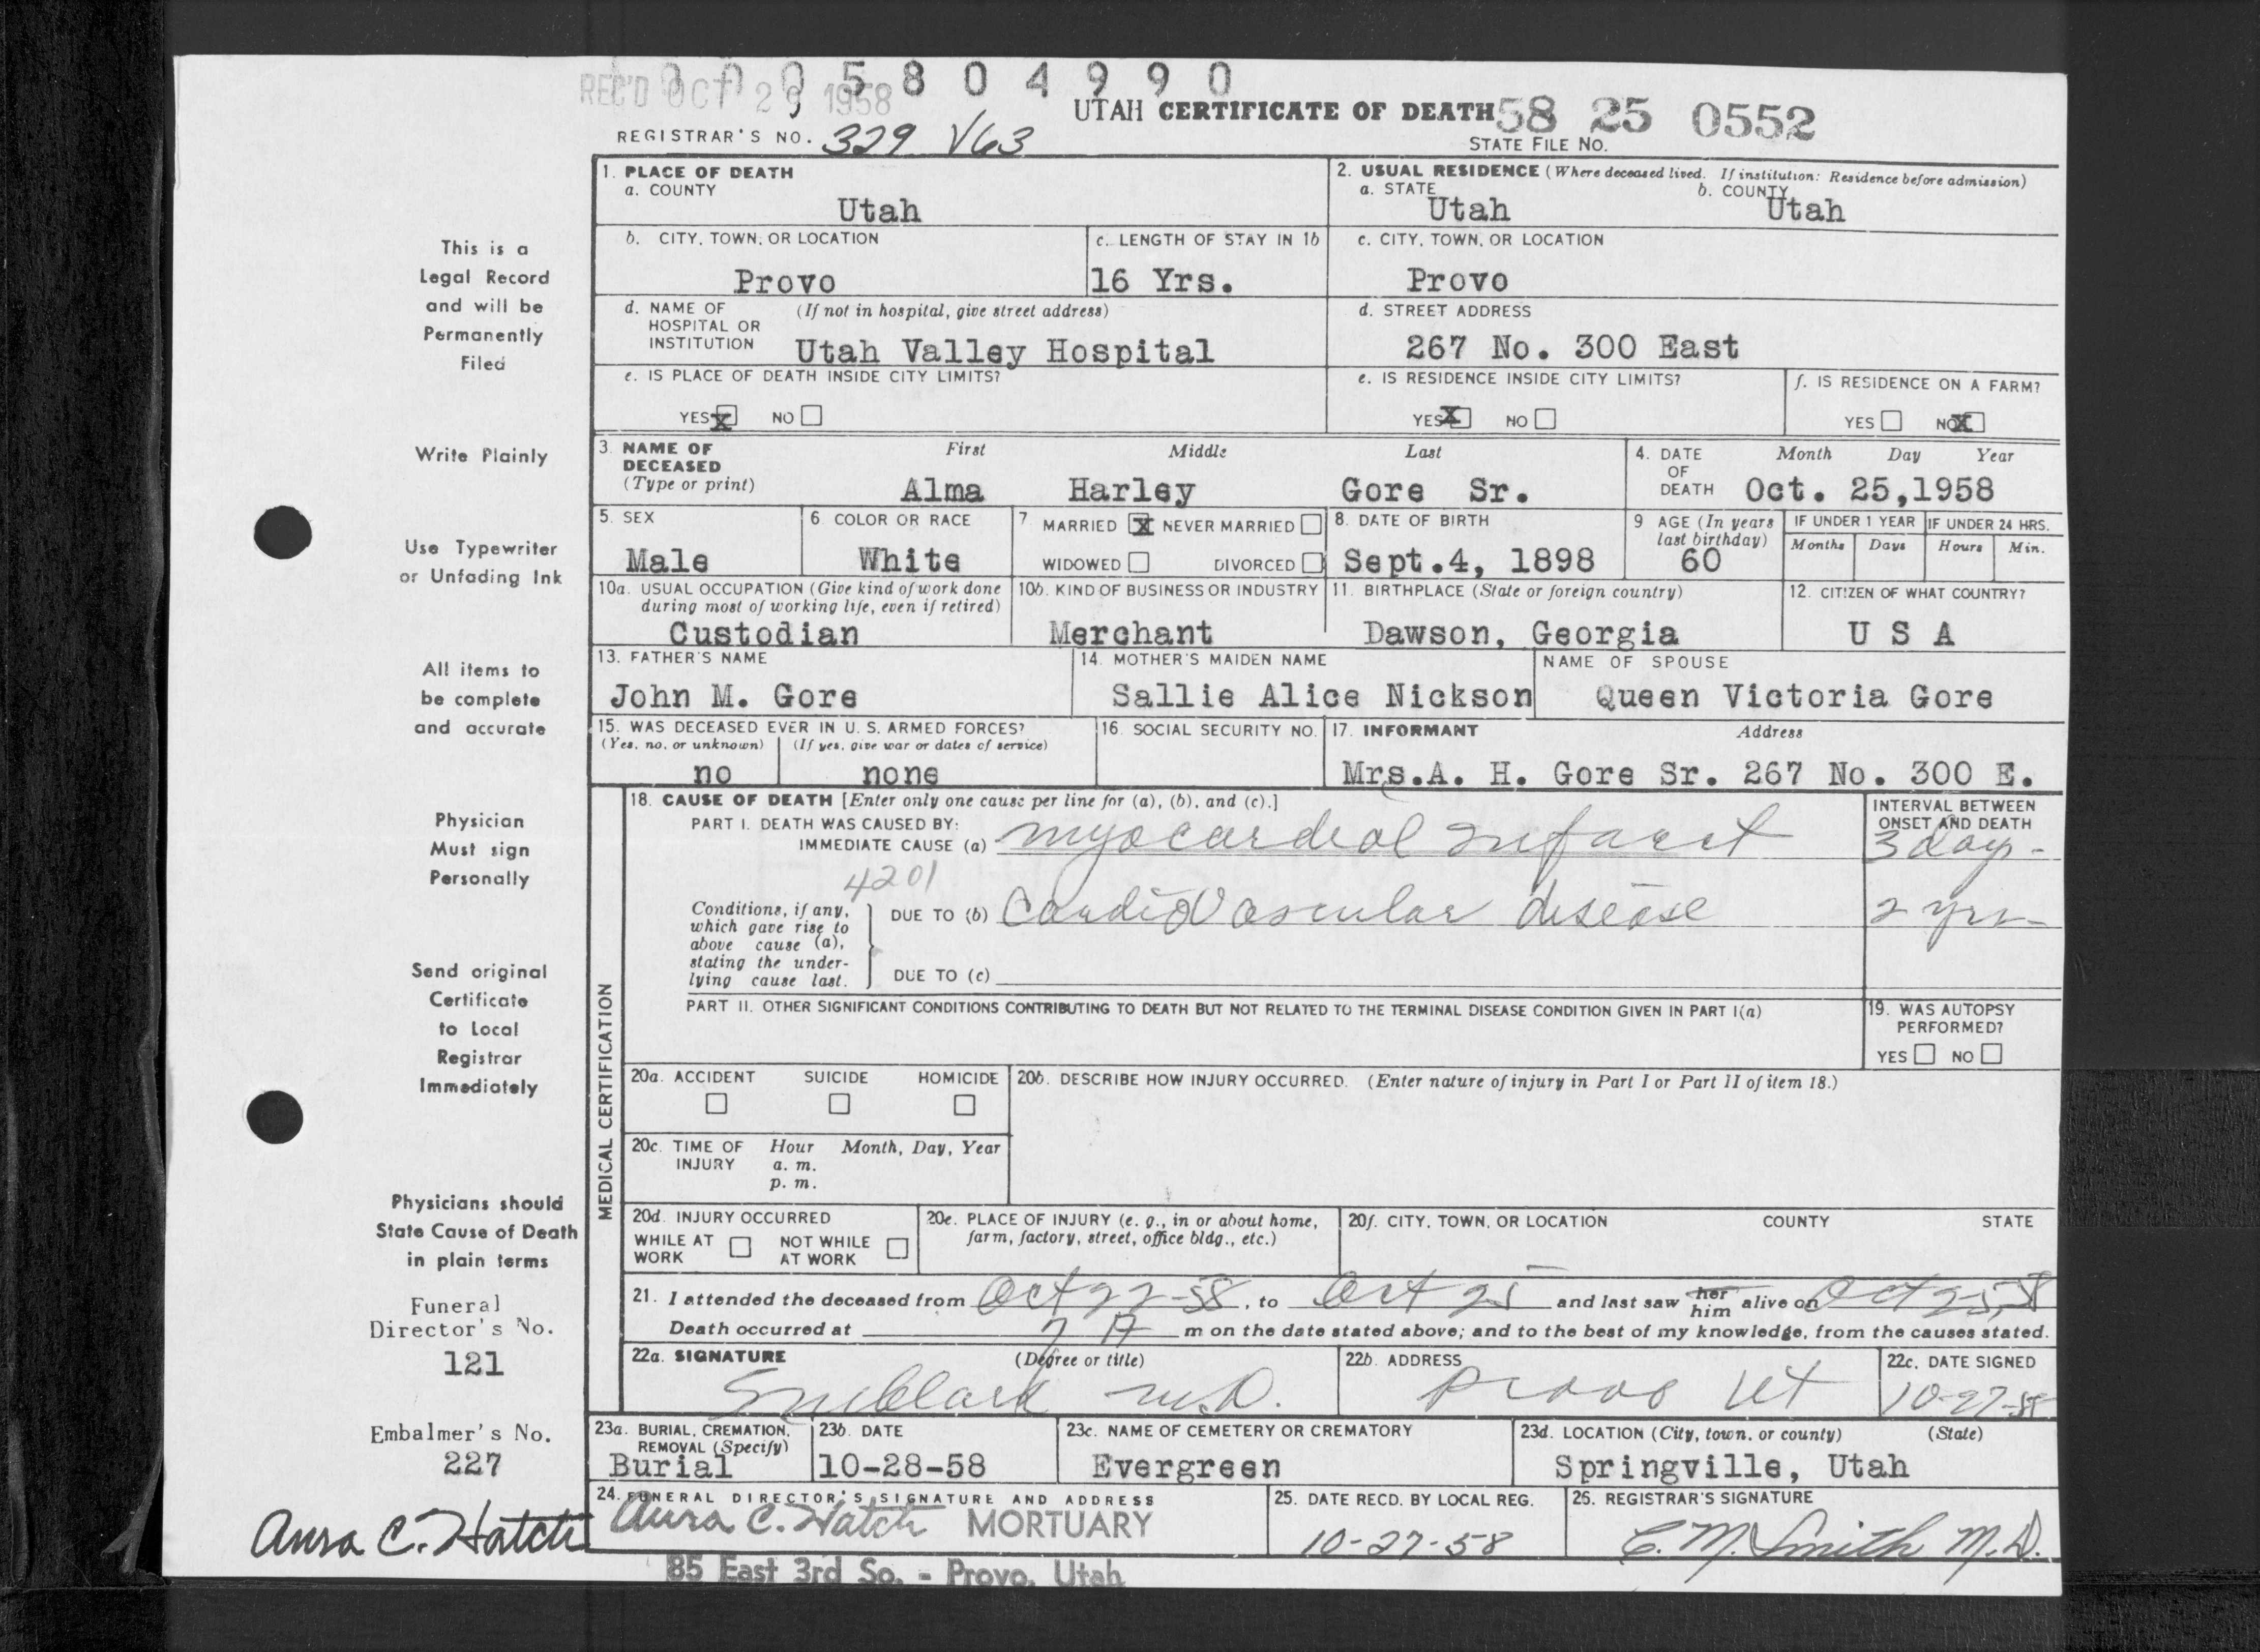 0005804990
REC'D OCT 29 1958
UTAH CERTIFICATE OF DEATH 58 25 0552
REGISTRAR'S NO. 329 V63
STATE FILE NO.
1. PLACE OF DEATH
a. COUNTY
Utah
2. USUAL RESIDENCE (Where deceased lived. If institution: Residence before admission)
a. STATE b. COUNTY
Utah Utah
b. CITY, TOWN, OR LOCATION
Provo
c. LENGTH OF STAY IN 1b
16 Yrs.
c. CITY, TOWN, OR LOCATION
Provo
d. NAME OF (If not in hospital, give street address)
HOSPITAL OR
INSTITUTION Utah Valley Hospital
d. STREET ADDRESS
267 No. 300 East
e. IS PLACE OF DEATH INSIDE CITY LIMITS?
YES X NO
e. IS RESIDENCE INSIDE CITY LIMITS?
YES X NO
f. IS RESIDENCE ON A FARM?
YES NO X
3. NAME OF First Middle Last
DECEASED
(Type or print) Alma Harley Gore Sr.
4. DATE Month Day Year
OF
DEATH Oct. 25,1958
5. SEX
Male
6. COLOR OR RACE
White
7 MARRIED X NEVER MARRIED
WIDOWED DIVORCED
8. DATE OF BIRTH
Sept.4, 1898
9 AGE (In years
last birthday)
60
IF UNDER 1 YEAR IF UNDER 24 HRS.
Months Days Hours Min.
10a. USUAL OCCUPATION (Give kind of work done
during most of working life, even if retired)
Custodian
10b. KIND OF BUSINESS OR INDUSTRY
Merchant
11. BIRTHPLACE (State or foreign country)
Dawson, Georgia
12. CITIZEN OF WHAT COUNTRY?
U S A
13. FATHER'S NAME
John M. Gore
14. MOTHER'S MAIDEN NAME
Sallie Alice Nickson
NAME OF SPOUSE
Queen Victoria Gore
15. WAS DECEASED EVER IN U. S. ARMED FORCES?
(Yes, no, or unknown) (If yes, give war or dates of service)
no none
16. SOCIAL SECURITY NO.
17. INFORMANT Address
Mrs.A. H. Gore Sr. 267 No. 300 E.
MEDICAL CERTIFICATION
18. CAUSE OF DEATH [Enter only one cause per line for (a), (b), and (c).]
INTERVAL BETWEEN
ONSET AND DEATH
PART I. DEATH WAS CAUSED BY:
IMMEDIATE CAUSE (a) myocardial infarct 3 days-
4201
Conditions, if any,
which gave rise to
above cause (a),
stating the under-
lying cause last.
DUE TO (b) Cardio Vascular disease 2 yrs-
DUE TO (c)
PART II. OTHER SIGNIFICANT CONDITIONS CONTRIBUTING TO DEATH BUT NOT RELATED TO THE TERMINAL DISEASE CONDITION GIVEN IN PART I(a)
19. WAS AUTOPSY
PERFORMED?
YES NO
20a. ACCIDENT SUICIDE HOMICIDE
20b. DESCRIBE HOW INJURY OCCURRED. (Enter nature of injury in Part I or Part II of item 18.)
20c. TIME OF Hour Month, Day, Year
INJURY a. m.
p. m.
20d. INJURY OCCURRED
WHILE AT NOT WHILE
WORK AT WORK
20e. PLACE OF INJURY (e. g., in or about home,
farm, factory, street, office bldg., etc.)
20f. CITY, TOWN, OR LOCATION COUNTY STATE
21. I attended the deceased from Oct 22-58, to Oct 25 and last saw her him alive on Oct 25, 58
Death occurred at 7 A m on the date stated above; and to the best of my knowledge, from the causes stated.
22a. SIGNATURE (Degree or title)
Clark M.D.
22b. ADDRESS
Provo Ut
22c. DATE SIGNED
10-27-58
23a. BURIAL, CREMATION,
REMOVAL (Specify)
Burial
23b. DATE
10-28-58
23c. NAME OF CEMETERY OR CREMATORY
Evergreen
23d. LOCATION (City, town, or county) (State)
Springville, Utah
24. FUNERAL DIRECTOR'S SIGNATURE AND ADDRESS
Aura C. Hatch MORTUARY
85 East 3rd So. - Provo, Utah
25. DATE RECD. BY LOCAL REG.
10-27-58
26. REGISTRAR'S SIGNATURE
C. M. Smith M.D.
This is a
Legal Record
and will be
Permanently
Filed
Write Plainly
Use Typewriter
or Unfading Ink
All items to
be complete
and accurate
Physician
Must sign
Personally
Send original
Certificate
to Local
Registrar
Immediately
Physicians should
State Cause of Death
in plain terms
Funeral
Director's No.
121
Embalmer's No.
227
Aura C. Hatch